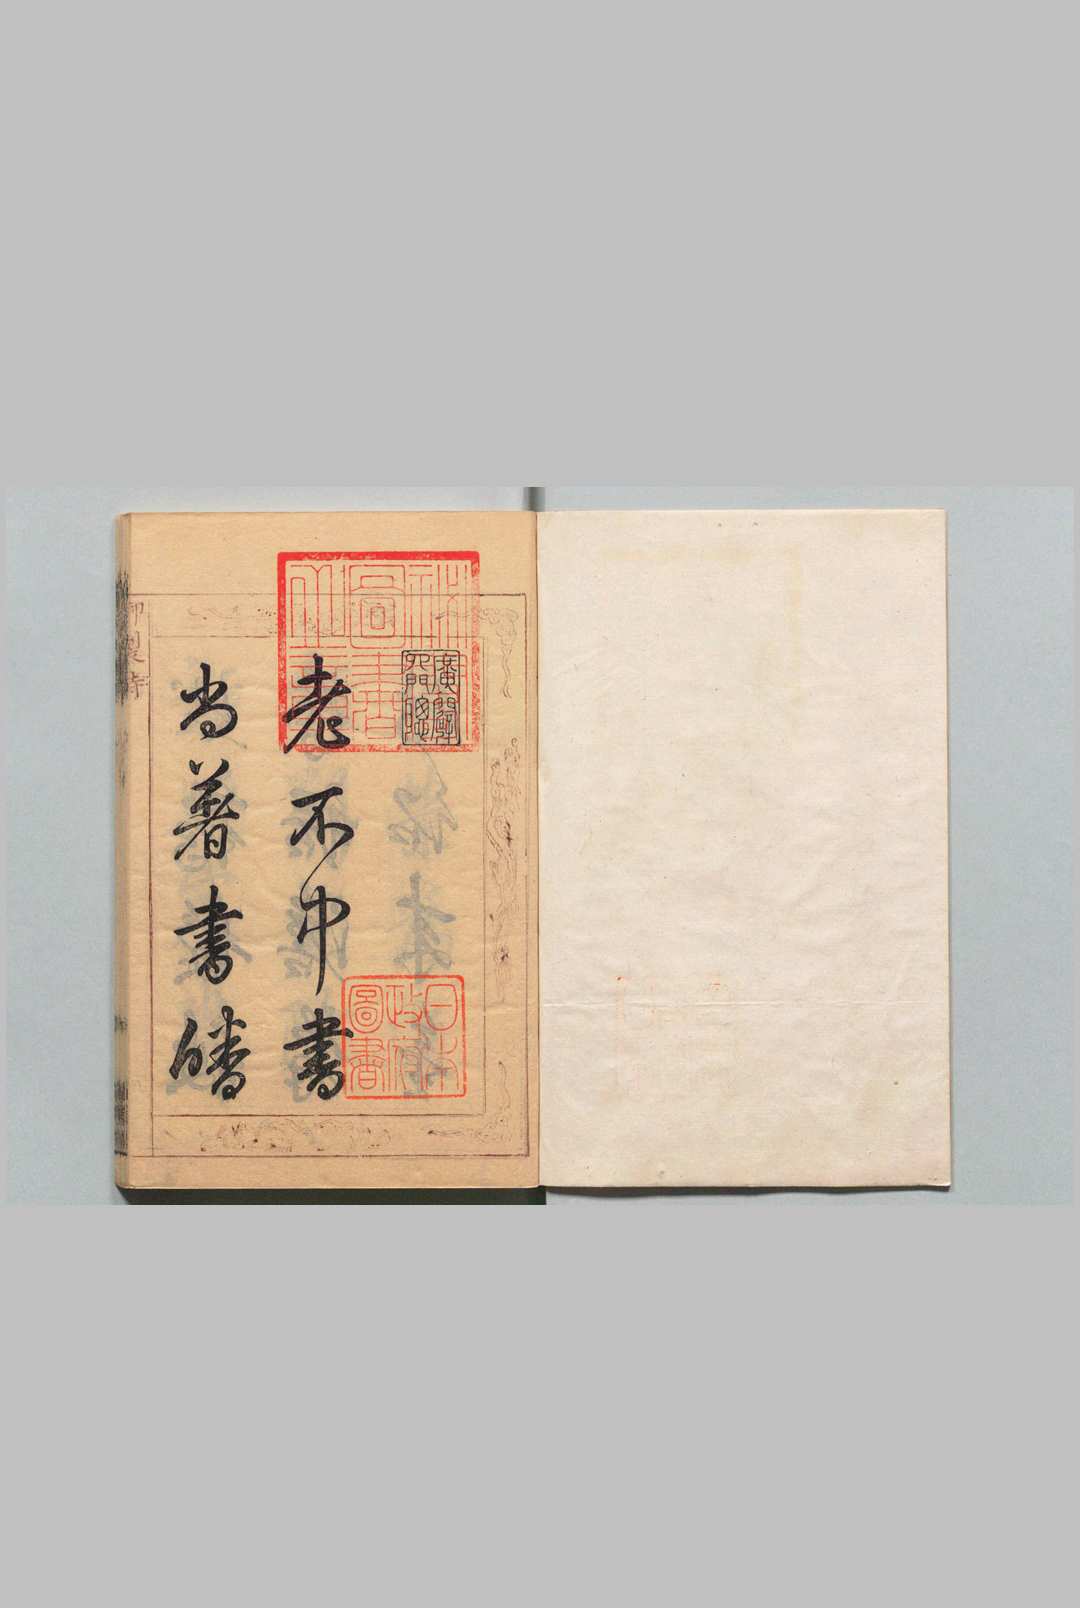 秘閣圖書之章
老不中書
日本政府圖書
尚著書皤
御製詩